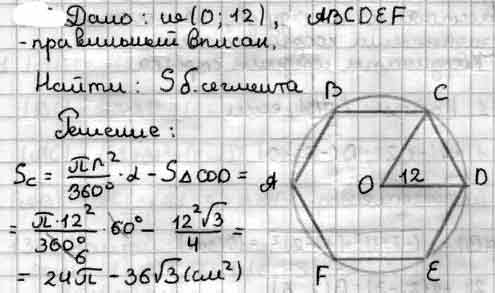 Дано: ω(O; 12), ABCDEF
- правильный вписан.
Найти: S б. сегмента
Решение:
Sc = πr²/360° · α - S△COD =
= π·12²/360° · 60° - 12²√3/4 =
6
= 24π - 36√3 (см²)
B
C
A
O
12
D
F
E